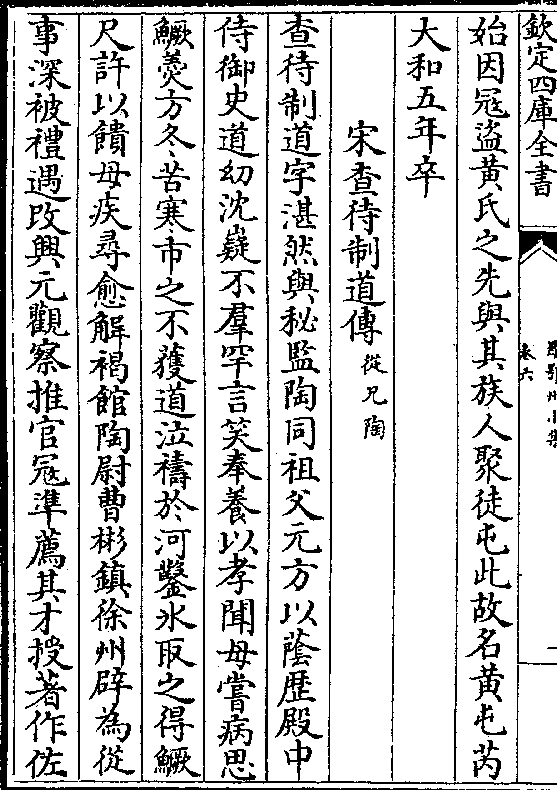 欽定四庫全書
卷六
始因冦盜黄氏之先與其族人聚徒屯此故名黄屯芮
大和五年卒
宋查待制道傳從兄陶
查待制道字湛然與秘監陶同祖父元方以蔭歴殿中
侍御史道幼沈嶷不羣罕言笑奉養以孝聞母嘗病思
鱖羮方冬苦寒市之不獲道泣禱於河鑿氷取之得鱖
尺許以饋母疾尋愈解褐館陶尉曹彬鎮徐州辟為從
事深被禮遇改興元觀察推官冦準薦其才授著作佐